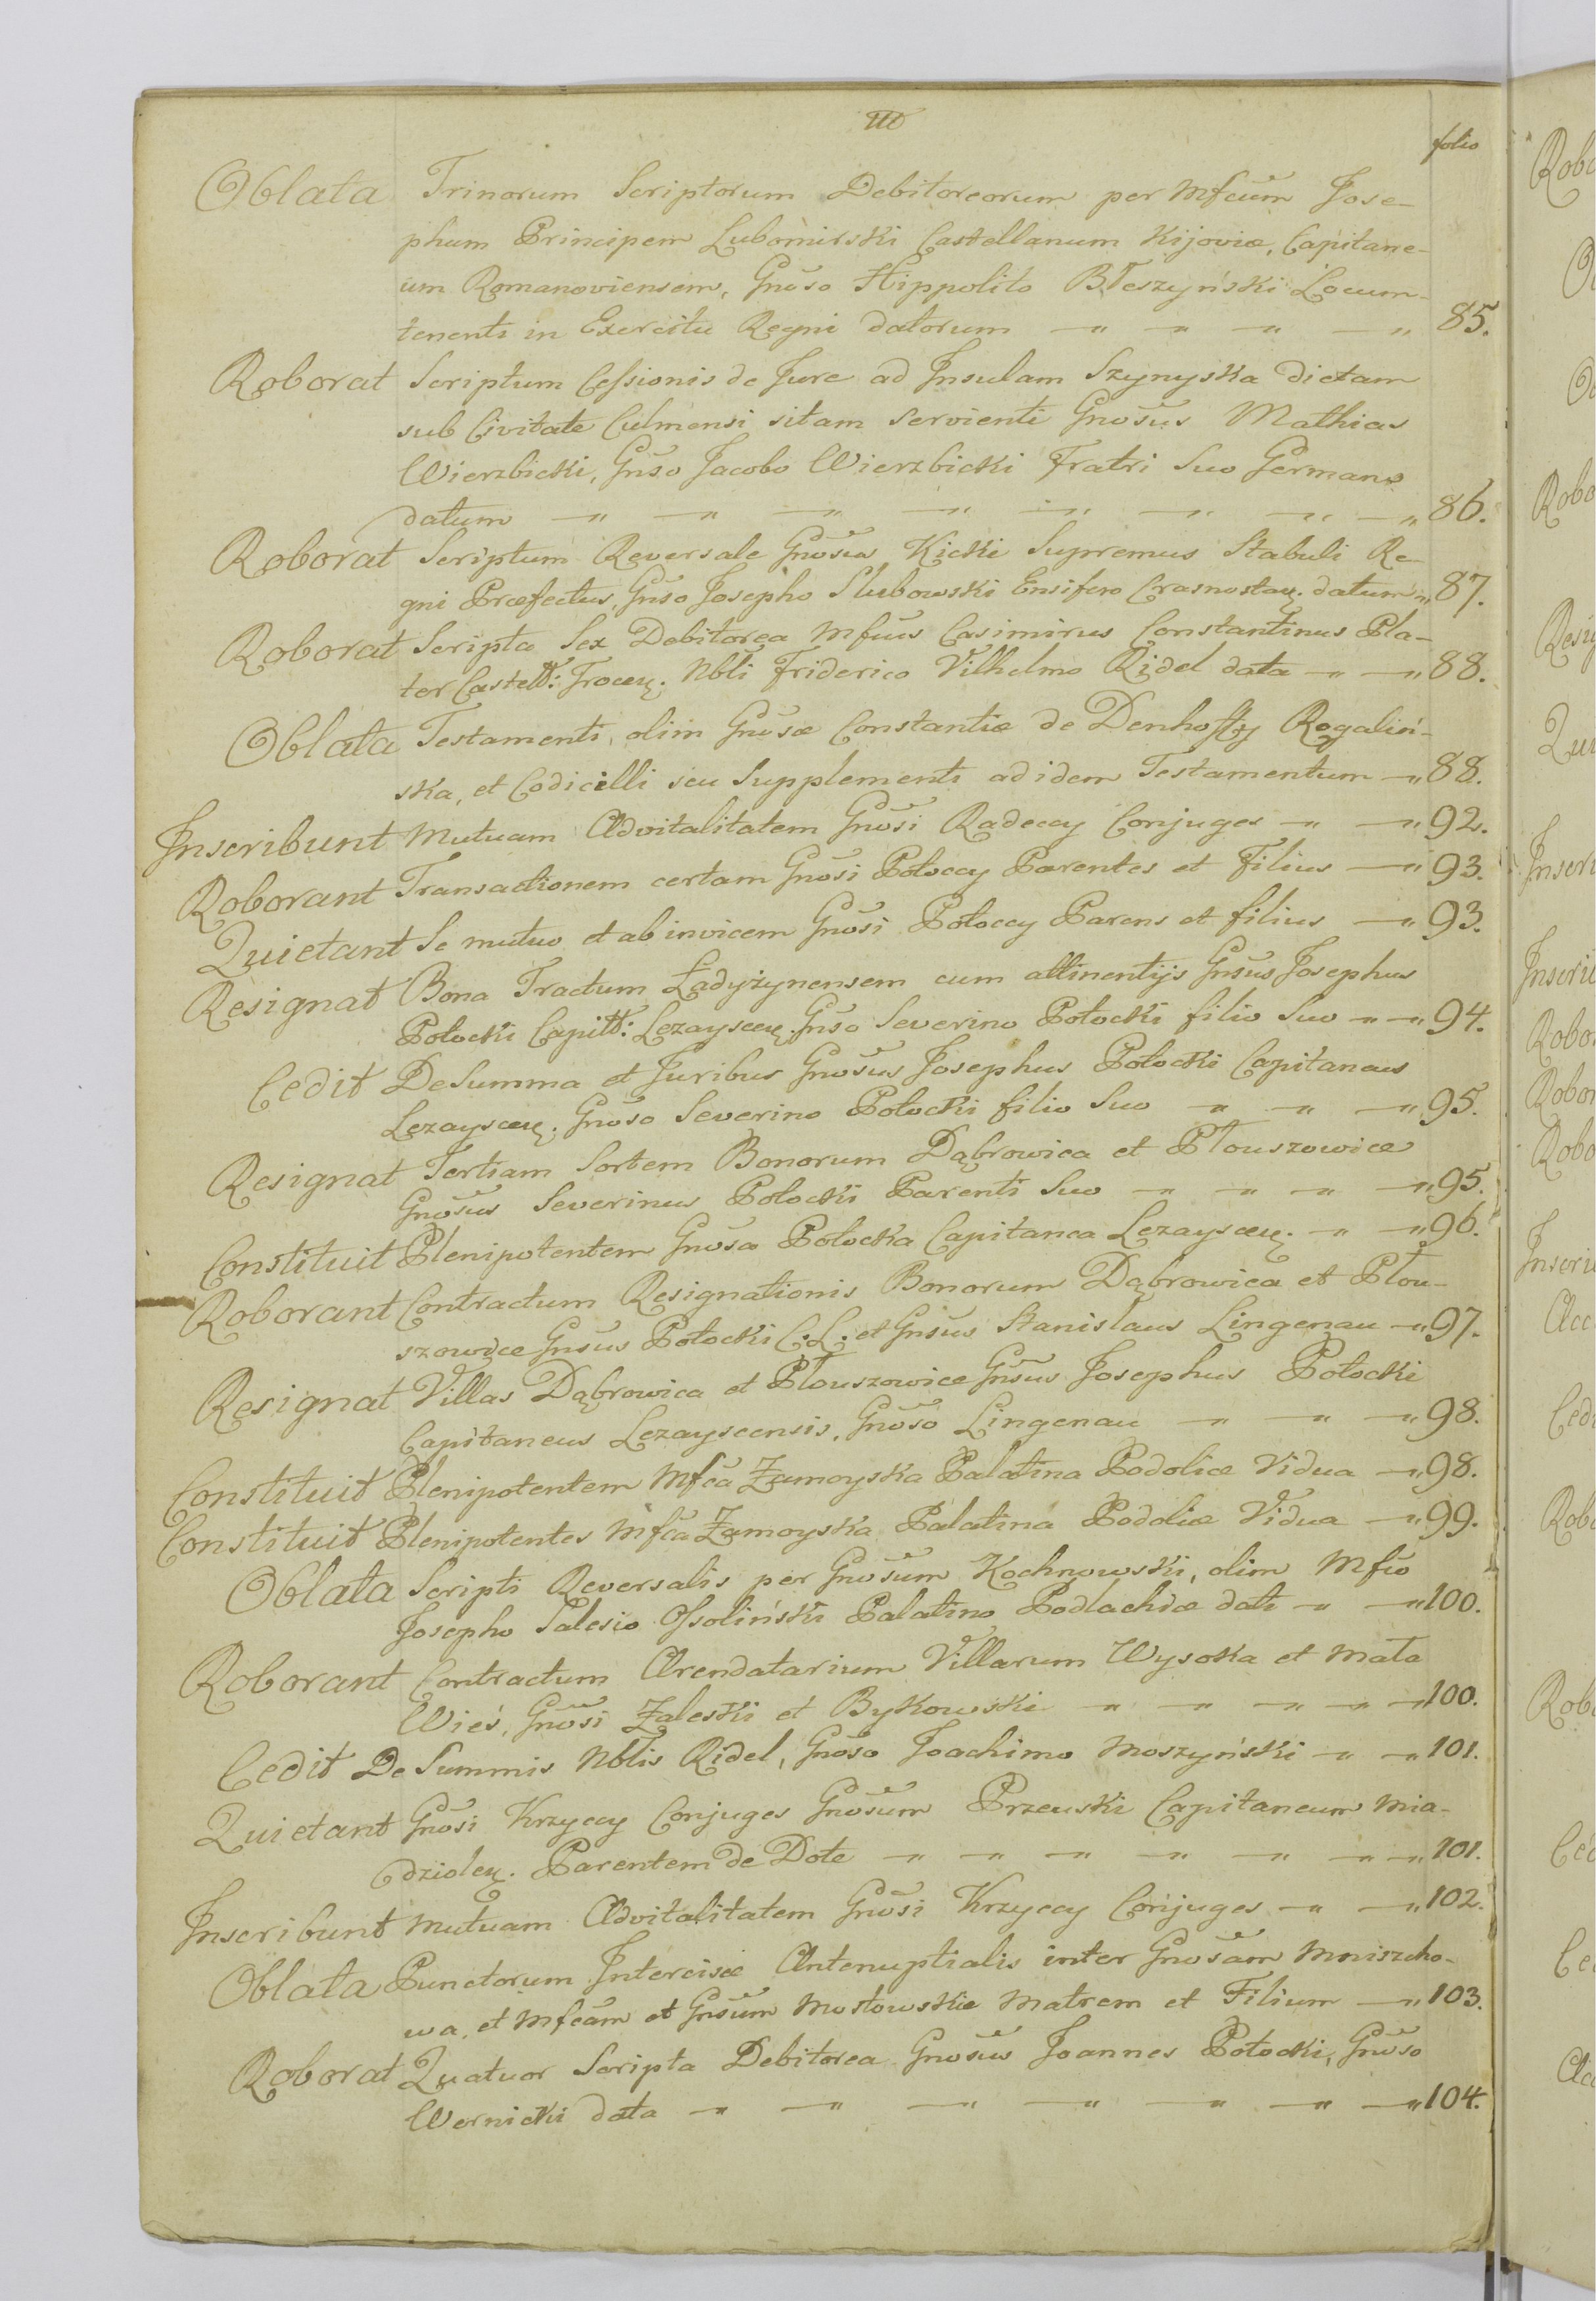 III
folio
Oblata Trinorum Scriptorum Debitoreorum per Mfcum Jose-
phum Principem Lubomirski Castellanum Kijoviæ, Capitane-
um Romanoviensem, Gnoso Hippolito Błeszyński Locum-
tenenti in Exercitu Regni datorum 85.
Roborat Scriptum Cessionis de Jure ad Insulam Szynyska dictam
sub Civitate Culmensi sitam servienti Gnosus Mathias
Wierzbicki, Gnso Jacobo Wierzbicki Fratri Suo Germano
datum 86.
Roborat Scriptum Reversale Gnosus Kicki Supremus Stabuli Re-
gni Præfectus, Gnso Josepho Slubowski Ensifero Crasnostav. datum 87.
Roborat Scripta Sex Debitorea Mfcus Casimirus Constantinus Pla-
ter Castell: Trocen. Nbli Friderico Vilhelmo Ridel data 88.
Oblata Testamenti, olim Gnosæ Constantiæ de Denhoffy Rogaliń-
ska, et Codicilli seu Supplementi ad idem Testamentum 88.
Inscribunt Mutuam Advitalitatem Gnosi Radeccy Conjuges 92.
Roborant Transactionem certam Gnosi Potoccy Parentes et Filius 93.
Quietant Se mutuo et ab invicem Gnosi Potoccy Parens et filius 93.
Resignat Bona Tractum Ładyżynensem cum attinentijs Gnsus Josephus
Potocki Capitt: Lezayscen. Gnso Severino Potocki filio Suo 94.
Cedit De Summa et Juribus Gnosus Josephus Potocki Capitaneus
Lezayscen. Gnoso Severino Potocki filio Suo 95.
Resignat Tertiam Sortem Bonorum Dąbrowica et Płouszowice
Gnosus Severinus Potocki Parenti Suo 95.
Constituit Plenipotentem Gnosa Potocka Capitanea Lezayscen. 96.
Roborant Contractum Resignationis Bonorum Dąbrowica et Płou-
szowice Gnsus Potocki C. L. et Gnsus Stanislaus Lingenau 97.
Resignat Villas Dąbrowica et Płouszowice Gnsus Josephus Potocki
Capitaneus Lezayscensis, Gnoso Lingenau 98.
Constituit Plenipotentem Mfca Zamoyska Palatina Podoliæ Vidua 98.
Constituit Plenipotentes Mfca Zamoyska Palatina Podoliæ Vidua 99.
Oblata Scripti Reversalis per Gnosum Kochnowski, olim Mfco
Josepho Salesio Ossoliński Palatino Podlachiæ dati 100.
Roborant Contractum Arendatarium Villarum Wysoka et Mała
Wieś, Gnosi Zaleski et Bykowski 100.
Cedit De Summis Nblis Ridel, Gnoso Joachimo Moszyński 101.
Quietant Gnosi Krzyccy Conjuges Gnosum Przeuski Capitaneum Mia-
dziolen. Parentem de Dote 101.
Inscribunt Mutuam Advitalitatem Gnosi Krzyccy Conjuges 102.
Oblata Punctorum Intercisæ Antenuptialis inter Gnosam Mniszcho-
wa, et Mfcam et Gnsum Mostowskie Matrem et Filium 103.
Roborat Quatuor Scripta Debitorea Gnosus Joannes Potocki, Gnoso
Wernicki data 104.